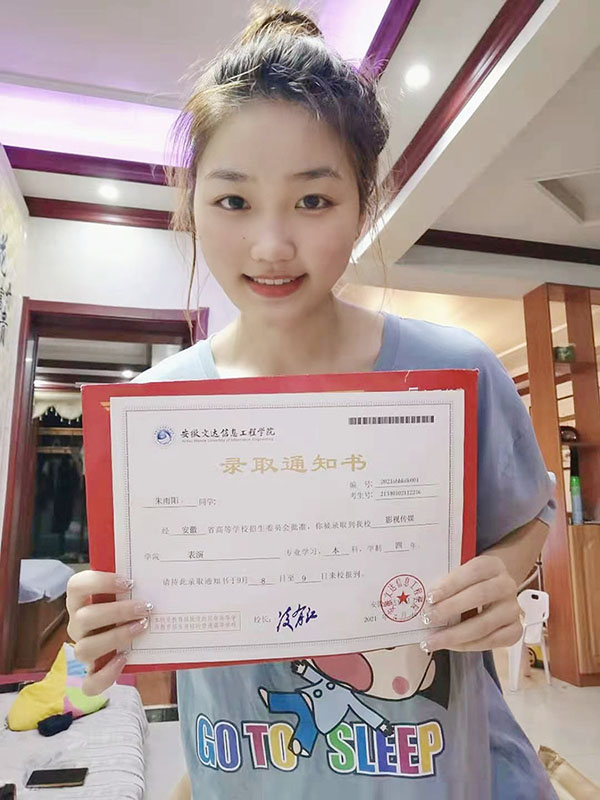 安徽文达信息工程学院
录取通知书
编号:
朱雨阳 同学:
考生号: 21340102112216
经 安徽 省高等学校招生委员会批准,你被录取到我校 影视传媒
学院 表演 专业学习,本 科,学制 四 年。
请持此录取通知书于9月 8 日至 9 日来校报到。
校长:
2021
GO TO SLEEP